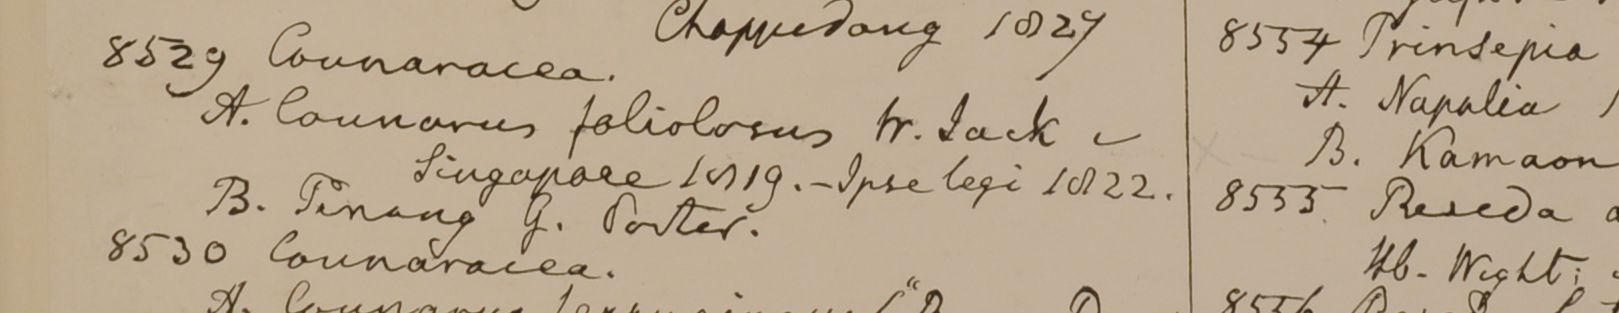 Chappedong 1827
8529 Connaracea.
A. Connarus foliolosus W. Jack e
Singapore 1819. - Ipse legi 1822.
B. Pinang G. Porter.
8530 Connaracea.
A. Connarus
8554 Prinsepia
A. Napalia
B. Kamaon
8555 Reseda
Hb. Wight;
8556